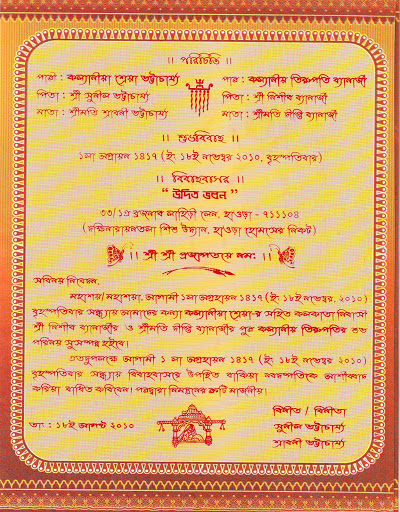 ।। পরিচিতি ।।
পাত্রী : কল্যানীয়া শ্রেয়া ভট্টাচার্য্য
পাত্র : কল্যানীয় তিরুপতি ব্যানার্জী
পিতা : শ্রী সুনীল ভট্টাচার্য্য
পিতা : শ্রী নিশীথ ব্যানার্জী
মাতা : শ্রীমতি শ্রাবনী ভট্টাচার্য্য
মাতা : শ্রীমতি দীপ্তি ব্যানার্জী
।। শুভবিবাহ ।।
১লা অগ্রহায়ন ১৪১৭ (ইং ১৮ই নভেম্বর ২০১০, বৃহস্পতিবার)
।। বিবাহবাসর ।।
“ উদিত ভবন ”
৩৩/১এ ব্রজনাথ লাহিড়ী লেন, হাওড়া - ৭১১১০৪
(দক্ষিনারায়নতলা শিশু উদ্যান, হাওড়া হোমসের নিকট)
।। শ্রী শ্রী প্রজাপতয়ে নমঃ ।।
সবিনয় নিবেদন,
মহাশয়/মহাশয়া, আগামী ১লা অগ্রহায়ন ১৪১৭ (ইং ১৮ই নভেম্বর, ২০১০)
বৃহস্পতিবার সন্ধ্যায় আমাদের কন্যা কল্যানীয়া শ্রেয়া-র সহিত কলকাতা নিবাসী
শ্রী নিশীথ ব্যানার্জীর ও শ্রীমতি দীপ্তি ব্যানার্জীর পুত্র কল্যানীয় তিরুপতির শুভ
পরিনয় সুসম্পন্ন হইবে।
এতদুপলক্ষে আগামী ১ লা অগ্রহায়ন ১৪১৭ (ইং ১৮ই নভেম্বর ২০১০)
বৃহস্পতিবার সন্ধ্যায় বিবাহবাসরে উপস্থিত থাকিয়া নবদম্পতিকে আশীর্ব্বাদ
করিয়া বাধিত করিবেন। পত্রদ্বারা নিমন্ত্রনের ত্রুটি মার্জনীয়।
বিনীত / বিনীতা
তাং : ১৮ই আগস্ট ২০১০
সুনীল ভট্টাচার্য্য
শ্রাবনী ভট্টাচার্য্য